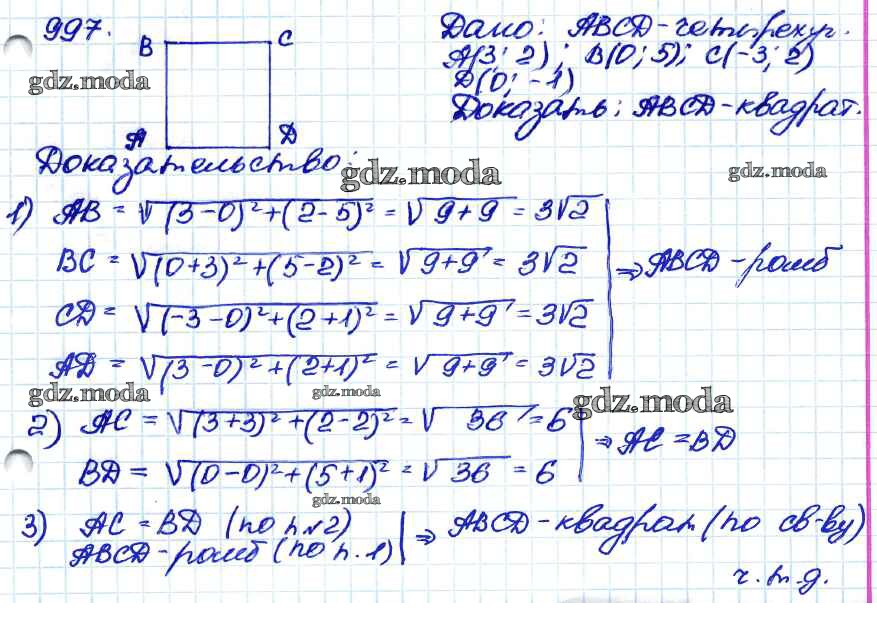 997.
B C
A D
Дано: ABCD-четырехуг.
A(3; 2); B(0; 5); C(-3; 2)
D(0; -1)
Доказать: ABCD-квадрат.
gdz.moda
Доказательство:
gdz.moda
gdz.moda
1) AB = √(3-0)²+(2-5)² = √9+9 = 3√2
BC = √(0+3)²+(5-2)² = √9+9 = 3√2
⇒ ABCD-ромб
CD = √(-3-0)²+(2+1)² = √9+9 = 3√2
AD = √(3-0)²+(2+1)² = √9+9 = 3√2
gdz.moda
gdz.moda
gdz.moda
2) AC = √(3+3)²+(2-2)² = √36 = 6
⇒ AC = BD
BD = √(0-0)²+(5+1)² = √36 = 6
gdz.moda
3) AC = BD (по п №2)
ABCD-ромб (по п. 1)
⇒ ABCD-квадрат (по св-ву)
ч.т.д.